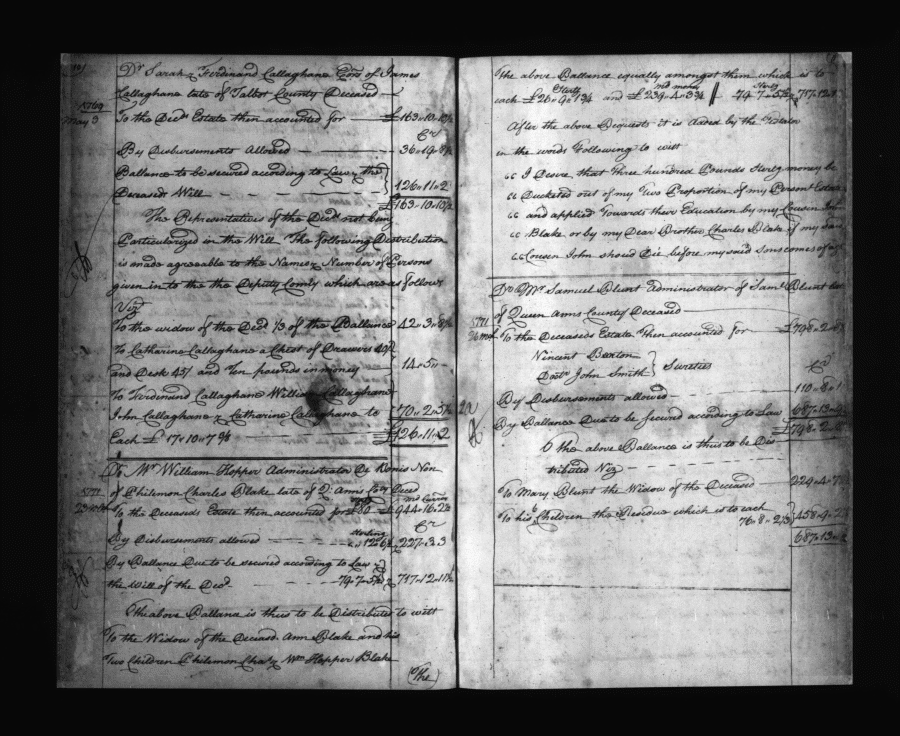 Dr. Sarah & Ferdinand Callaghane Exors of James
Callaghane late of Talbot County Deceased
1769
May 3
To the Deced Estate then accounted for £163.10.10½
Cr
By Disbursements Allowed 36.19.8½
Ballance to be secured according to Law & the
Deceaseds Will 126.11.2
£163.10.10½
The Representatives of the Deced not being
Particularized in the Will The following Distribution
is made agreeable to the Names & Number of Persons
given in to the Deputy Comty which are as follows
Viz
To the widow of the Deced ⅓ of the Ballance 42.3.8½
To Catharine Callaghane a Chest of Drawers 40/
and Desk 45/ and Ten pounds in money 14.5
To Ferdinand Callaghane William Callaghane
John Callaghane & Catharine Callaghane to 70.2.5½
Each £17.10.7¾ £126.11.2
Dr. Mr William Hopper Administrator De Bonis Non
of Philemon Charles Blake late of Q. Anns Coty Deced
1771
To the Deceaseds Estate then accounted for £80 £944.16.2½
Cr
By Disbursements allowed 227.3.3
By Ballance Due to be secured according to Law &
the Will of the Deced 79.7.5½ 717.12.11½
The above Ballance is thus to be Distributed to witt
To the Widow of the Deceasd Ann Blake and his
Two Children Philemon Chas & Wm Hopper Blake
(The
The above Ballance equally amongst them which is to
Sterlg md money Sterlg
each £26.9.1¾ and £239.4.3¾ 79.7.5½ 717.12.11½
After the above Bequests it is added by the Testator
in the words Following to witt
"I Desire that three hundred Pounds Sterlg money be
"Deducted out of my Two Proportion of my Personl Estate
"and applied Towards their Education by my Cousin John
"Blake or by my Dear Brother Charles Blake if my said
"Cousen John shoud Die before my said Sons comes of age
Dr. Mr Samuel Blunt Administrator of Saml Blunt late
of Queen Anns County Deceased
1771
To the Deceaseds Estate Then accounted for £798.2
Vincent Benton
Doctr John Smith } Sureties
Cr
By Disbursements allowed 110.8.1
By Ballance Due to be secured according to Law 687.13
£798.2
The above Ballance is thus to be Dis
tributed Viz
To Mary Blunt the Widow of the Deceased 229.4.7
To his 6 Children the Residue which is to each
76.8.2½ 458.9.2
687.13